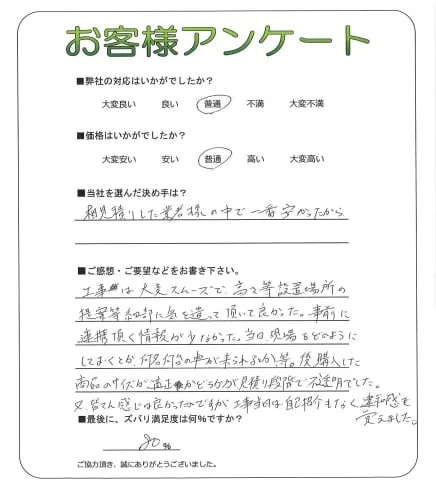 お客様アンケート
■弊社の対応はいかがでしたか？
大変良い 良い 普通 不満 大変不満
■価格はいかがでしたか？
大変安い 安い 普通 高い 大変高い
■当社を選んだ決め手は？
相見積りした業者様の中で一番安かったから
■ご感想・ご要望などをお書き下さい。
工事は大変スムーズで、高さ等設置場所の
提案等細部に気を遣って頂いて良かった。事前に
連携頂く情報が少なかった。当日、現場をどのように
しておくとか、何名何台の車が来られるとか、等。後購入した
商品のサイズが適正かどうかが見積り段階で不透明でした。
又、皆さん感じは良かったですが工事当日は自己紹介もなく違和感を
覚えました。
■最後に、ズバリ満足度は何％ですか？
80 %
ご協力頂き、誠にありがとうございました。